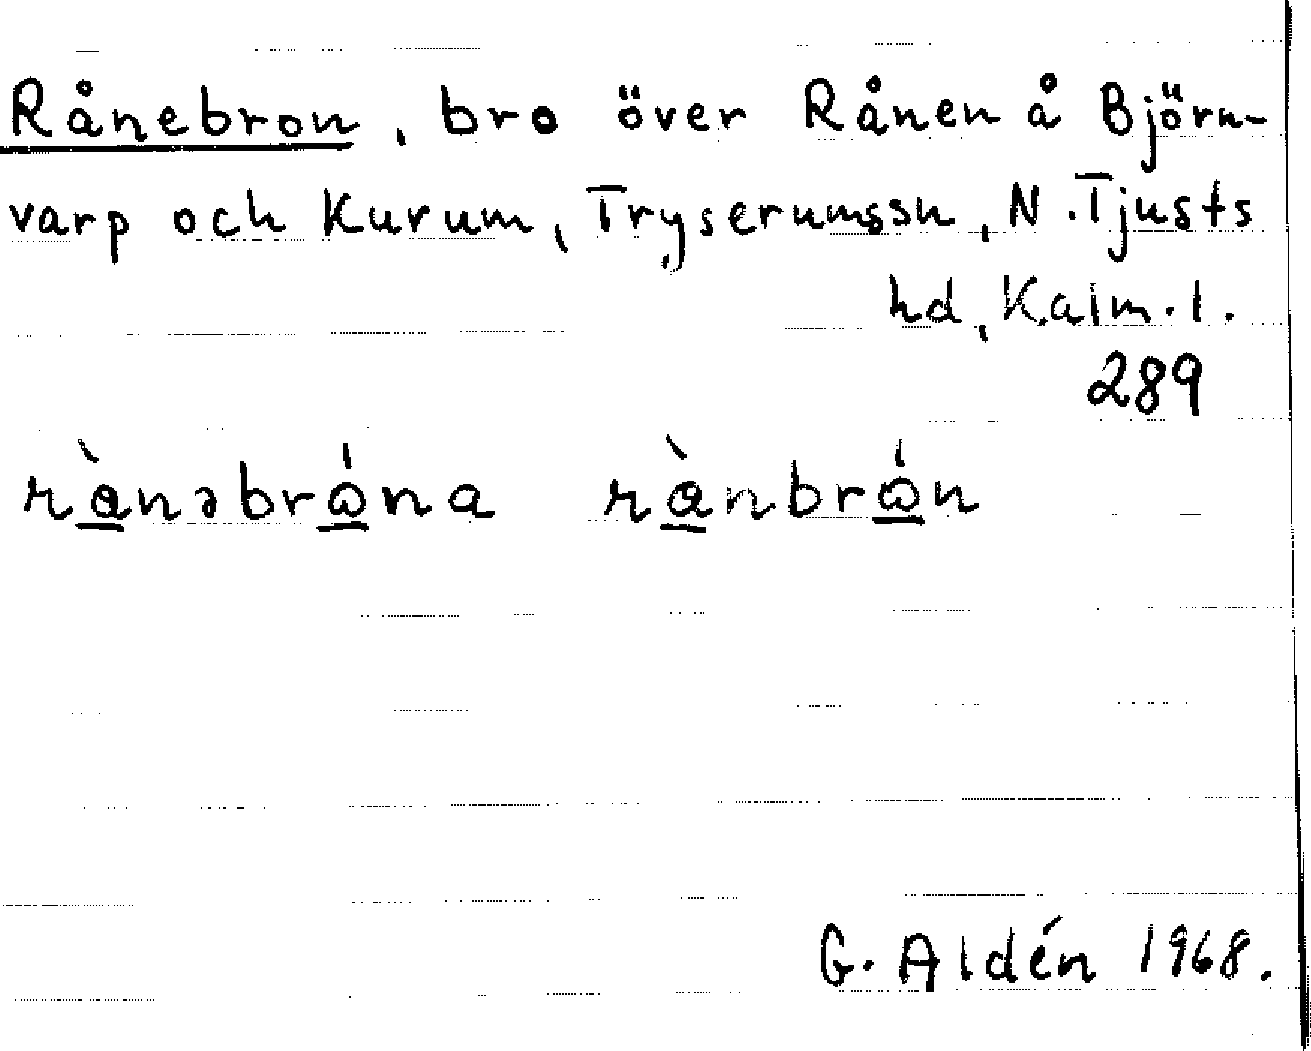 Rånebron, bro över Rånen å Björn-
varp och Kurum, Tryserumssn, N. Tjusts
hd, Kalm. l.
289
rànəbrɷ́na rànbrɷ́n
G. Aldén 1968.